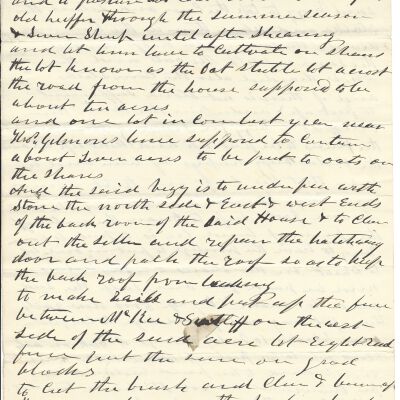 and a pasture
old heffer through the summer season
& Seven Sheep until after Shearing
and let him have to Cultivate on Shares
the lot known as the Oat stuble lot acrost
the road from the house supposed to be
about ten acres
and one lot in Corn last year near
Gilmores line supposed to Contain
about Seven acres to be put to oats on
the shares
and the said is to under pin with
Stone the north side & East & west Ends
of the back room of the said House & to Clean
out the Seller and repair the hatchway
door and patch the roof so as to keep
the back roof from leaking
to make rails and put up the fence
between McKee & on the west
side of the said acre lot Eight rod
put the same on good
blocks
to Cut the brush and Clear & burn up